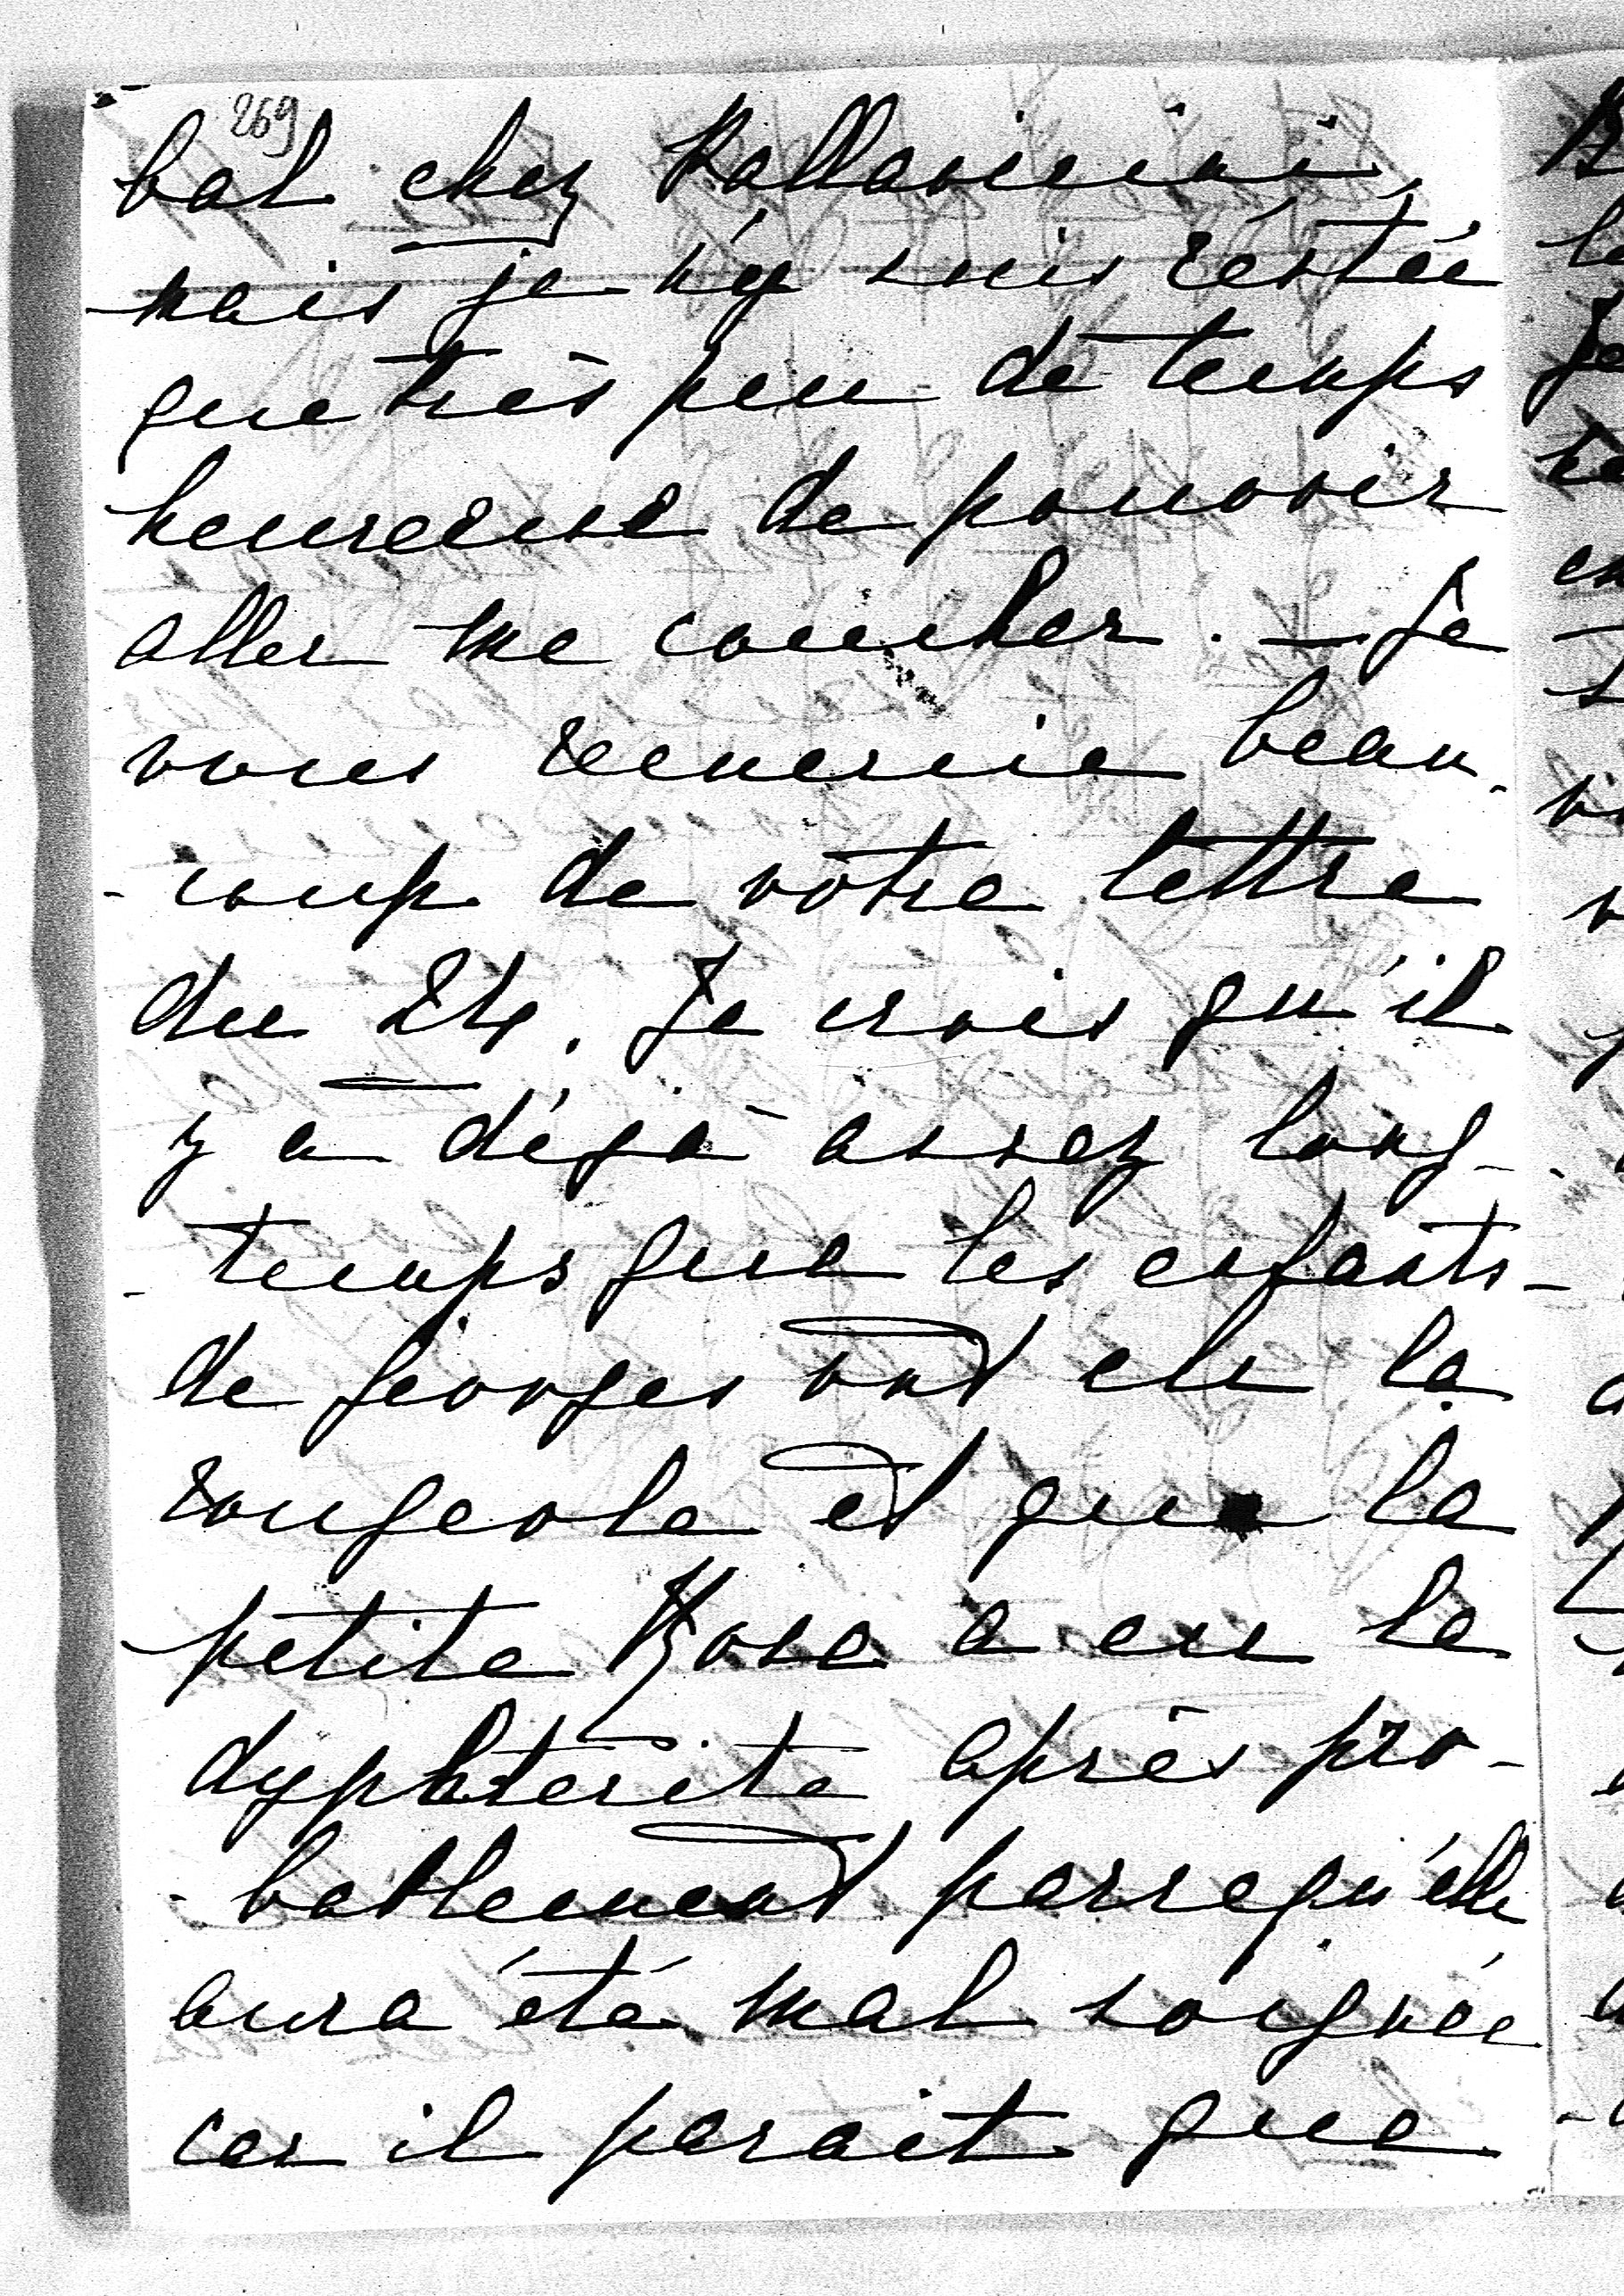 269
bal chez Pallavicini,
mais je n'y suis réstée
que très peu de temps
heureuse de pouvoir
aller me coucher. — Je
vous remercie beau-
-coup de votre lettre
du 24. Je crois qu'il
y a déjà assez long-
-temps que les enfants
de Georges ont eu la
rougeole et que la
petite Rose a eu la
dyphterite après pro-
-bablement parcequ'elle
aura été mal soignée
car il parait que